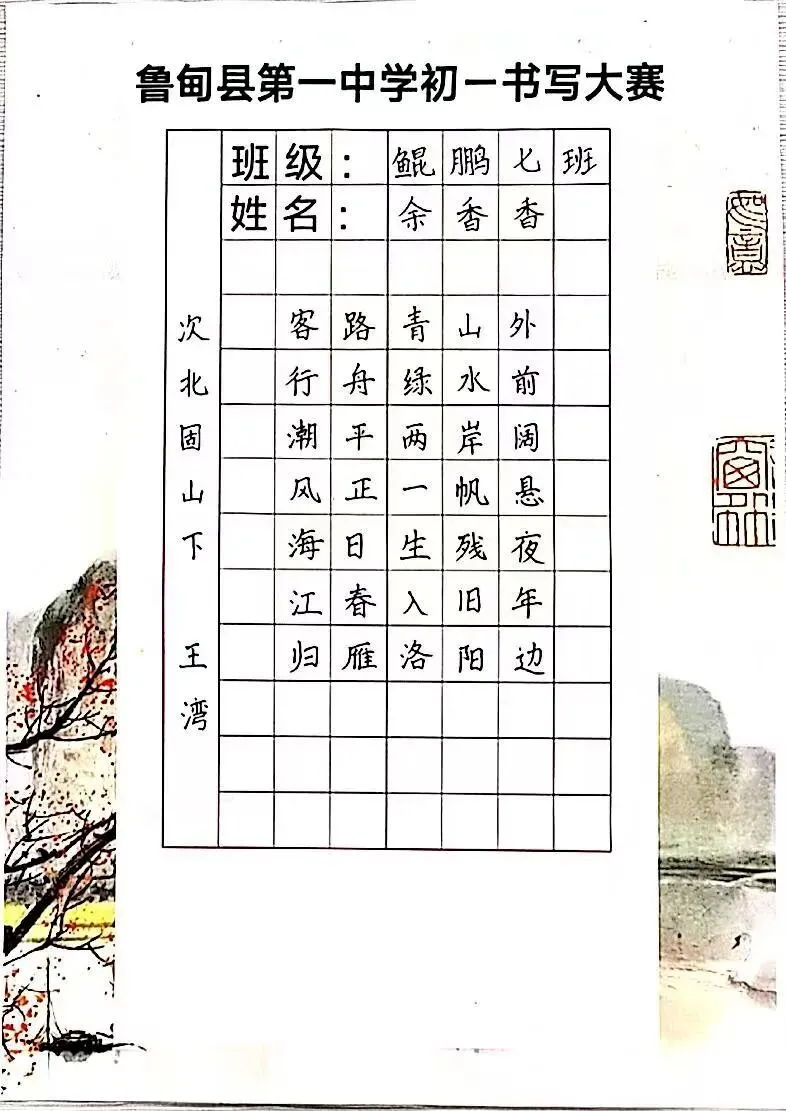 鲁甸县第一中学初一书写大赛
班级：鲲鹏七班
姓名：余香香
次北固山下 王湾
客路青山外
行舟绿水前
潮平两岸阔
风正一帆悬
海日生残夜
江春入旧年
归雁洛阳边
如意